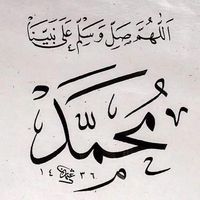 اَللّٰهُمَّ صَلِّ وَسَلِّمْ عَلَى نَبِيِّنَا
مُحَمَّدٍ
١٤٣٦